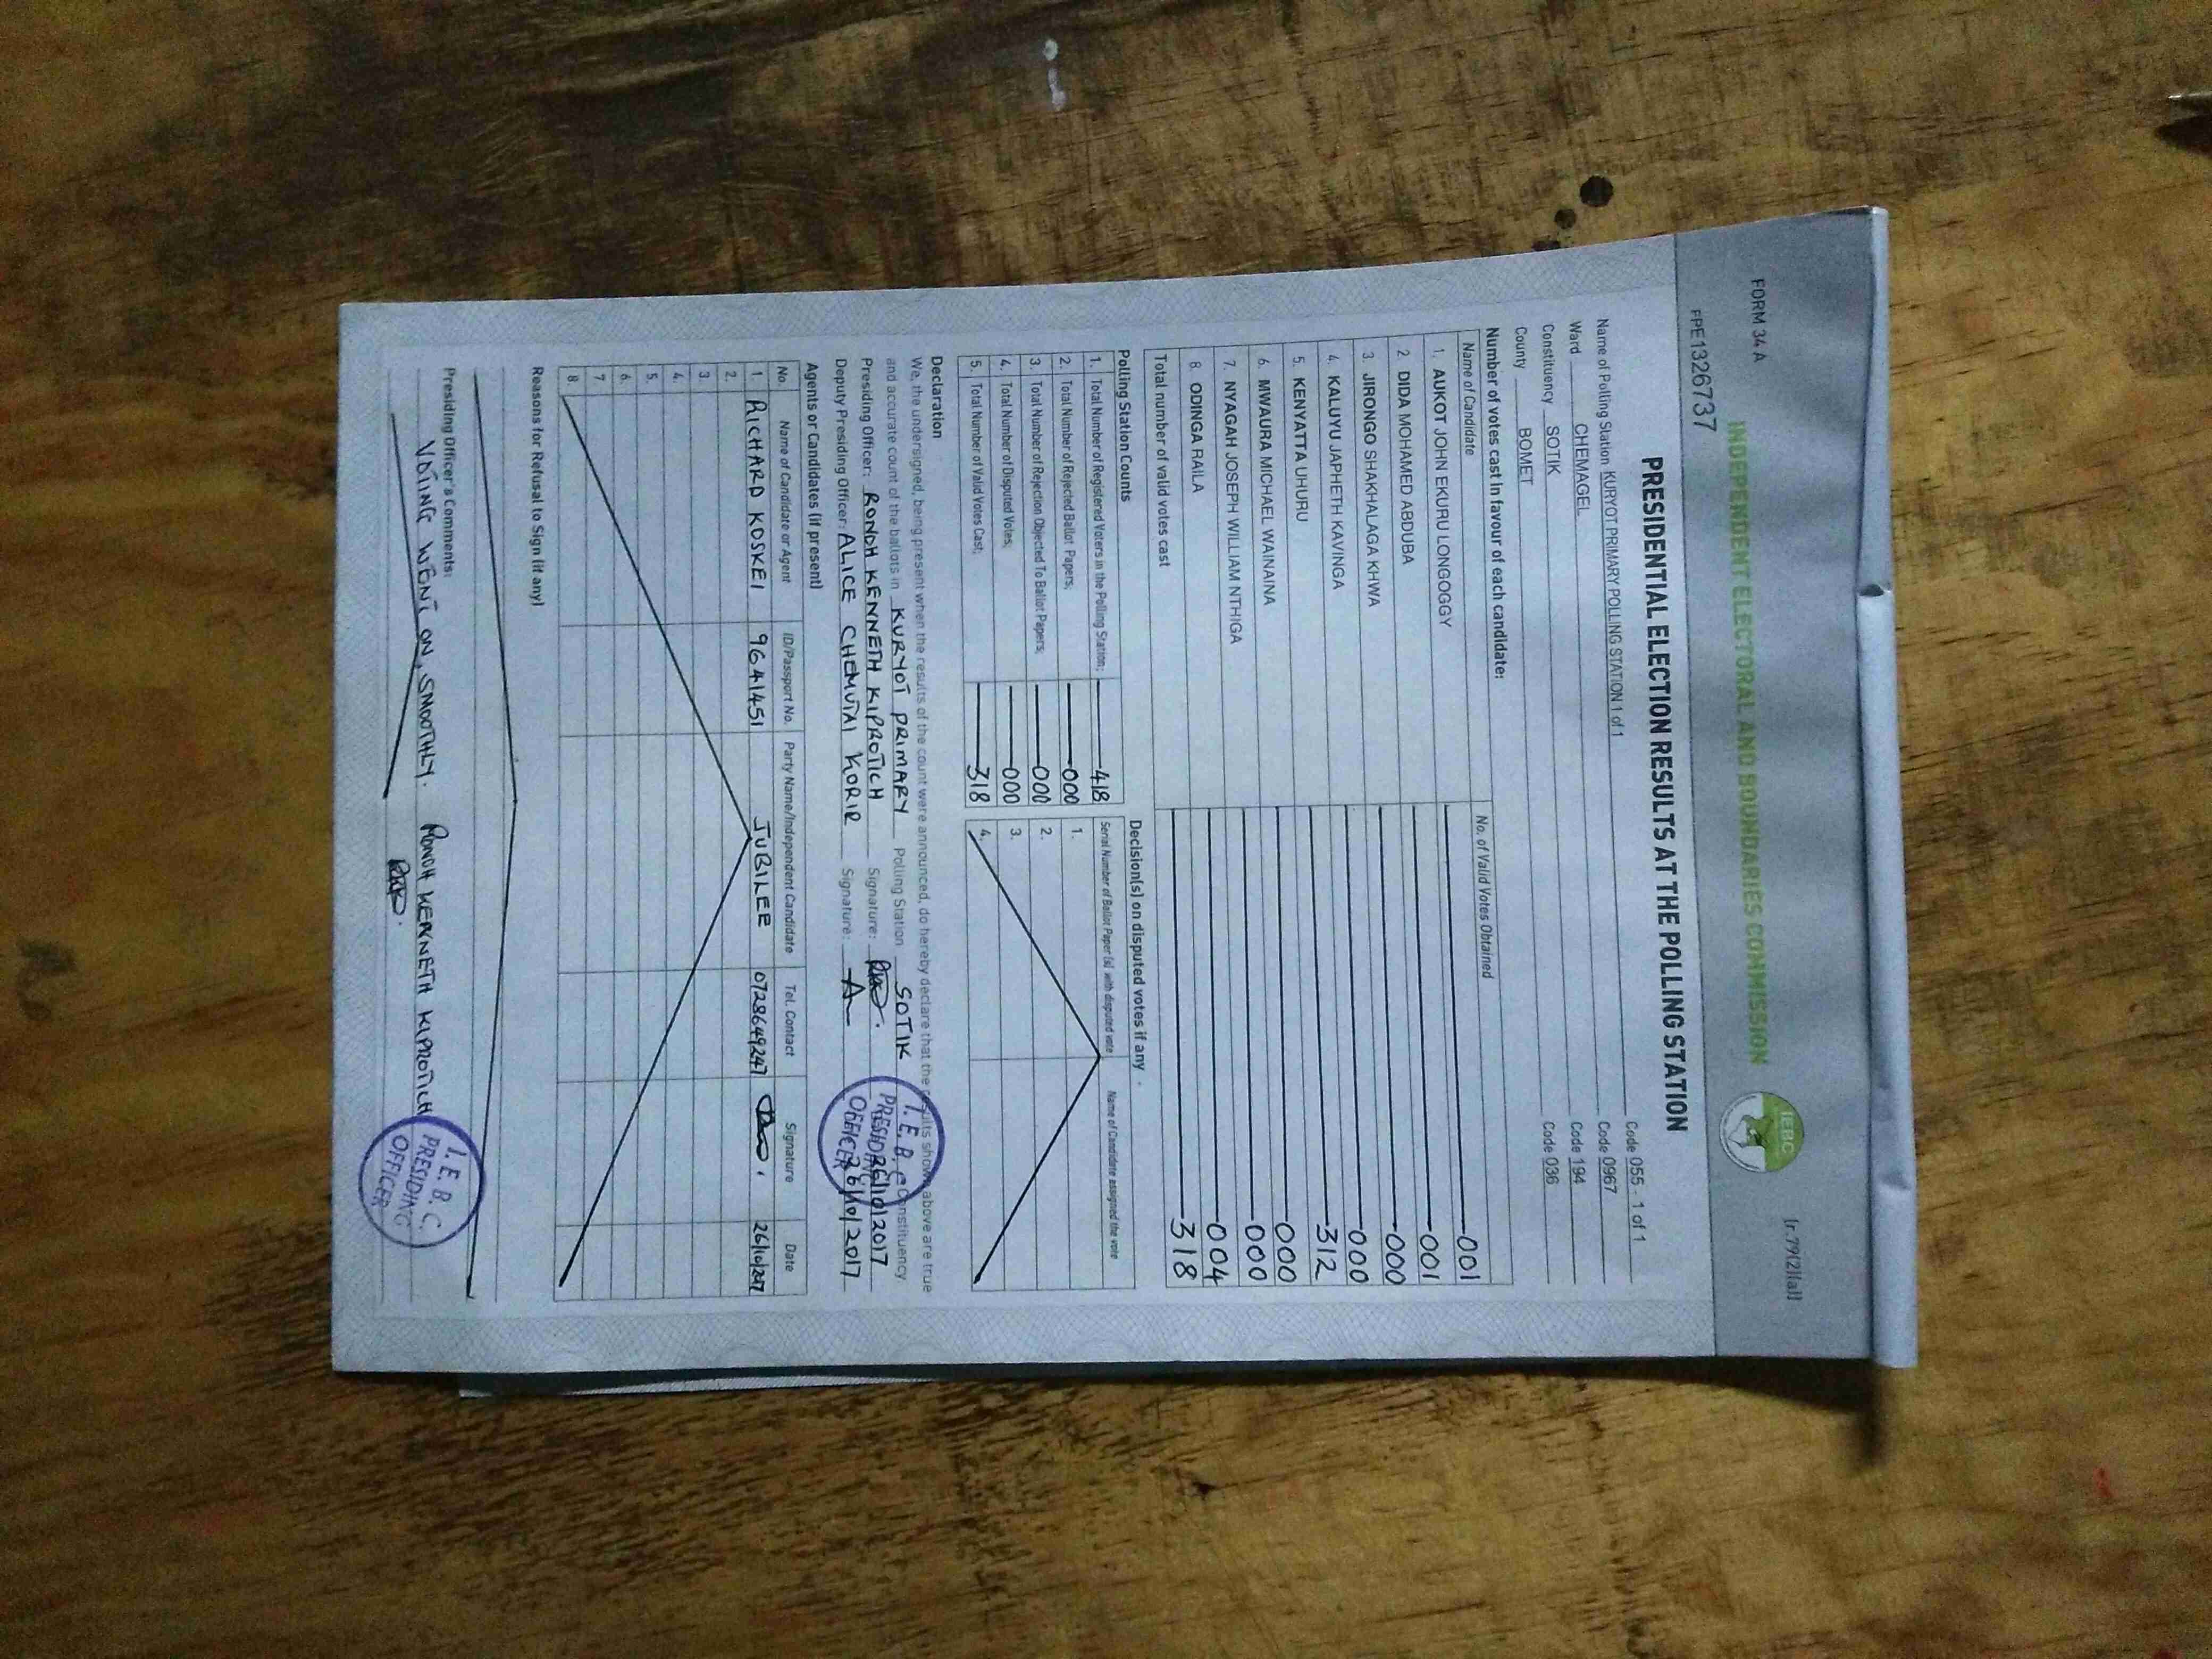 FORM 34 A
[r.79(2)(a)]
INDEPENDENT ELECTORAL AND BOUNDARIES COMMISSION
IEBC
FPE1326737
PRESIDENTIAL ELECTION RESULTS AT THE POLLING STATION
Name of Polling Station KURYOT PRIMARY POLLING STATION 1 of 1 Code 055 - 1 of 1
Ward CHEMAGEL Code 0967
Constituency SOTIK Code 194
County BOMET Code 036
Number of votes cast in favour of each candidate:
Name of Candidate No. of Valid Votes Obtained
1. AUKOT JOHN EKURU LONGOGGY 001
2 DIDA MOHAMED ABDUBA 001
3. JIRONGO SHAKHALAGA KHWA 000
4. KALUYU JAPHETH KAVINGA 000
5. KENYATTA UHURU 312
6. MWAURA MICHAEL WAINAINA 000
7. NYAGAH JOSEPH WILLIAM NTHIGA 000
8. ODINGA RAILA 004
Total number of valid votes cast 318
Polling Station Counts
1. Total Number of Registered Voters in the Polling Station; 418
2. Total Number of Rejected Ballot Papers; 000
3. Total Number of Rejection Objected To Ballot Papers; 000
4. Total Number of Disputed Votes; 000
5. Total Number of Valid Votes Cast; 318
Decision(s) on disputed votes if any
Serial Number of Ballot Paper (s) with disputed vote Name of Candidate assigned the vote
1.
2.
3.
4.
Declaration
We, the undersigned, being present when the results of the count were announced, do hereby declare that the results shown above are true
and accurate count of the ballots in KURYOT PRIMARY Polling Station SOTIK Constituency
Presiding Officer: RONOH KENNETH KIPROTICH Signature: 26/10/2017
Deputy Presiding Officer: ALICE CHEMUTAI KORIR Signature: 26/10/2017
I.E.B.C
PRESIDING
OFFICER
Agents or Candidates (if present)
No. Name of Candidate or Agent ID/Passport No. Party Name/Independent Candidate Tel. Contact Signature Date
1. RICHARD KOSKEI 9641451 JUBILEE 0728649247 26/10/2017
2.
3.
4.
5.
6.
7
8.
Reasons for Refusal to Sign (if any)
Presiding Officer's Comments:
VOTING WENT ON, SMOOTHLY. RONOH KENNETH KIPROTICH
I.E.B.C.
PRESIDING
OFFICER